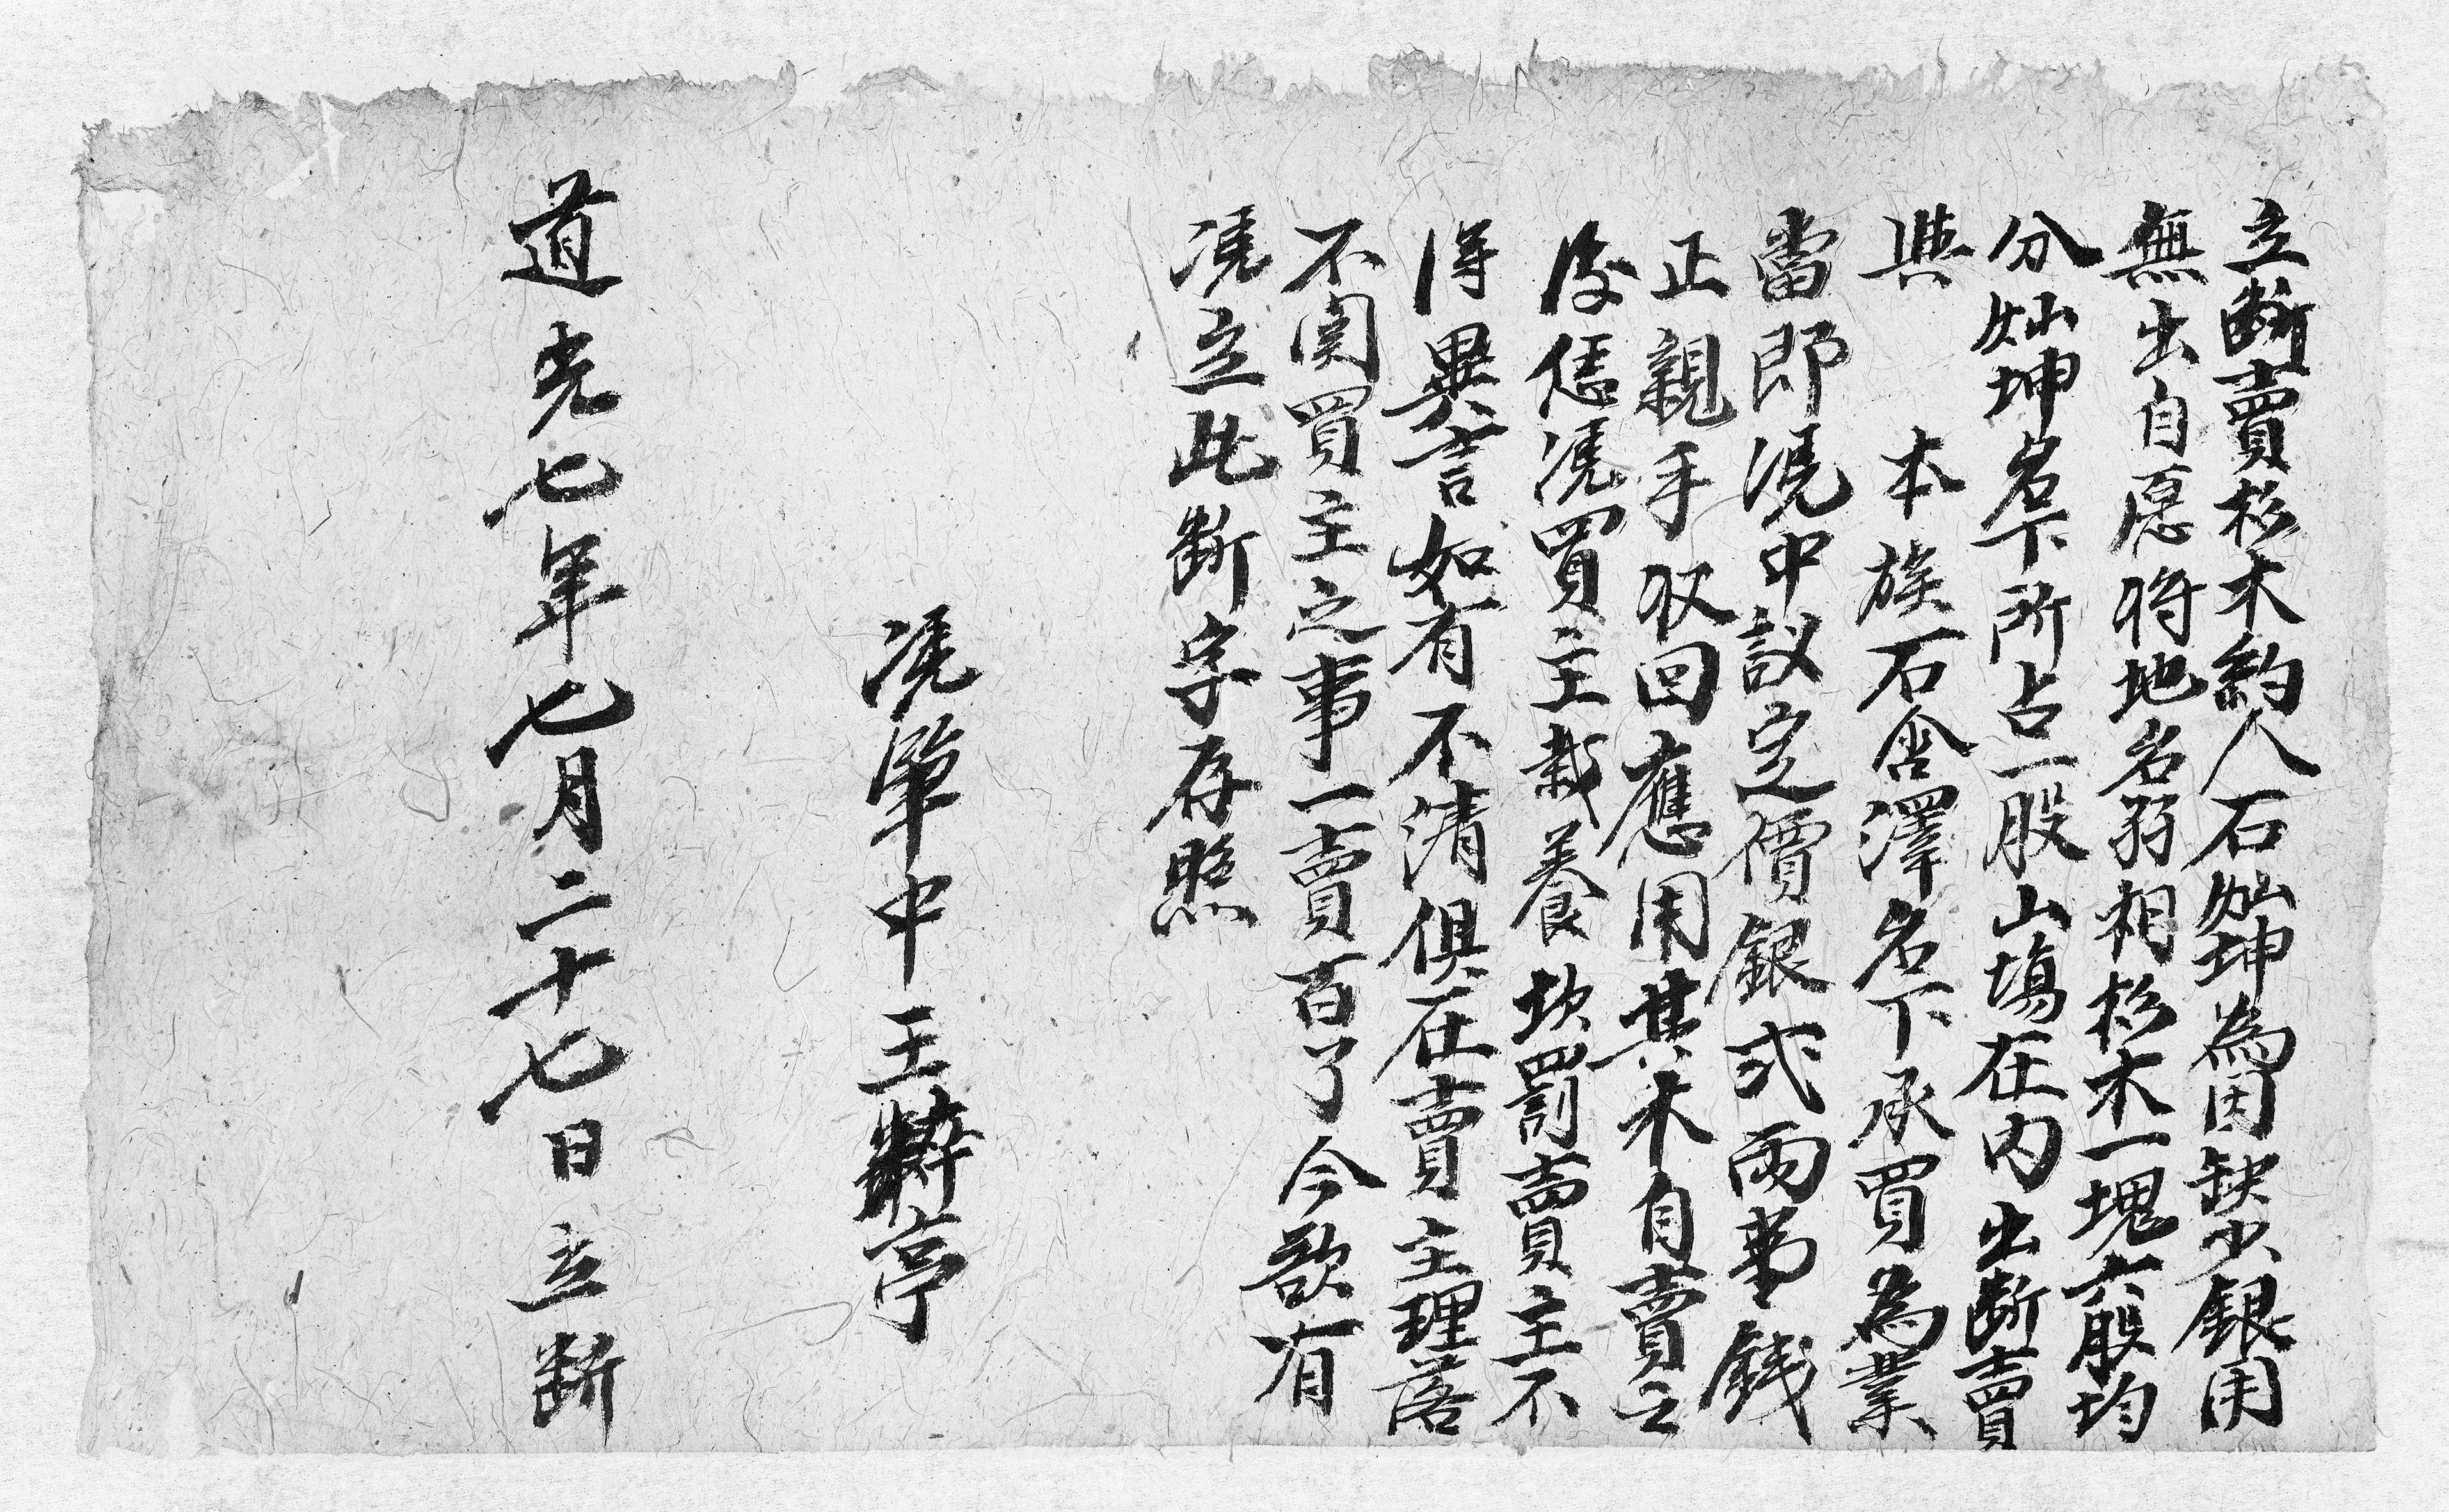 立斷賣杉木約人石灿坤為因缺少銀用
無出自愿将地名羽相杉木一塊六股均
分灿坤名下所占一股山塲在内出断賣
與 本族石含澤名下承買為業
當即慿中議定價銀弍兩 錢
正親手收回應用其木自賣之
後恁慿買主栽養坎罰賣主不
得異言如有不清俱在賣主理落
不関買主之事一賣百了今欲有
慿立此断字存照
慿筆中王 亭
道光七年七月二十七日立断